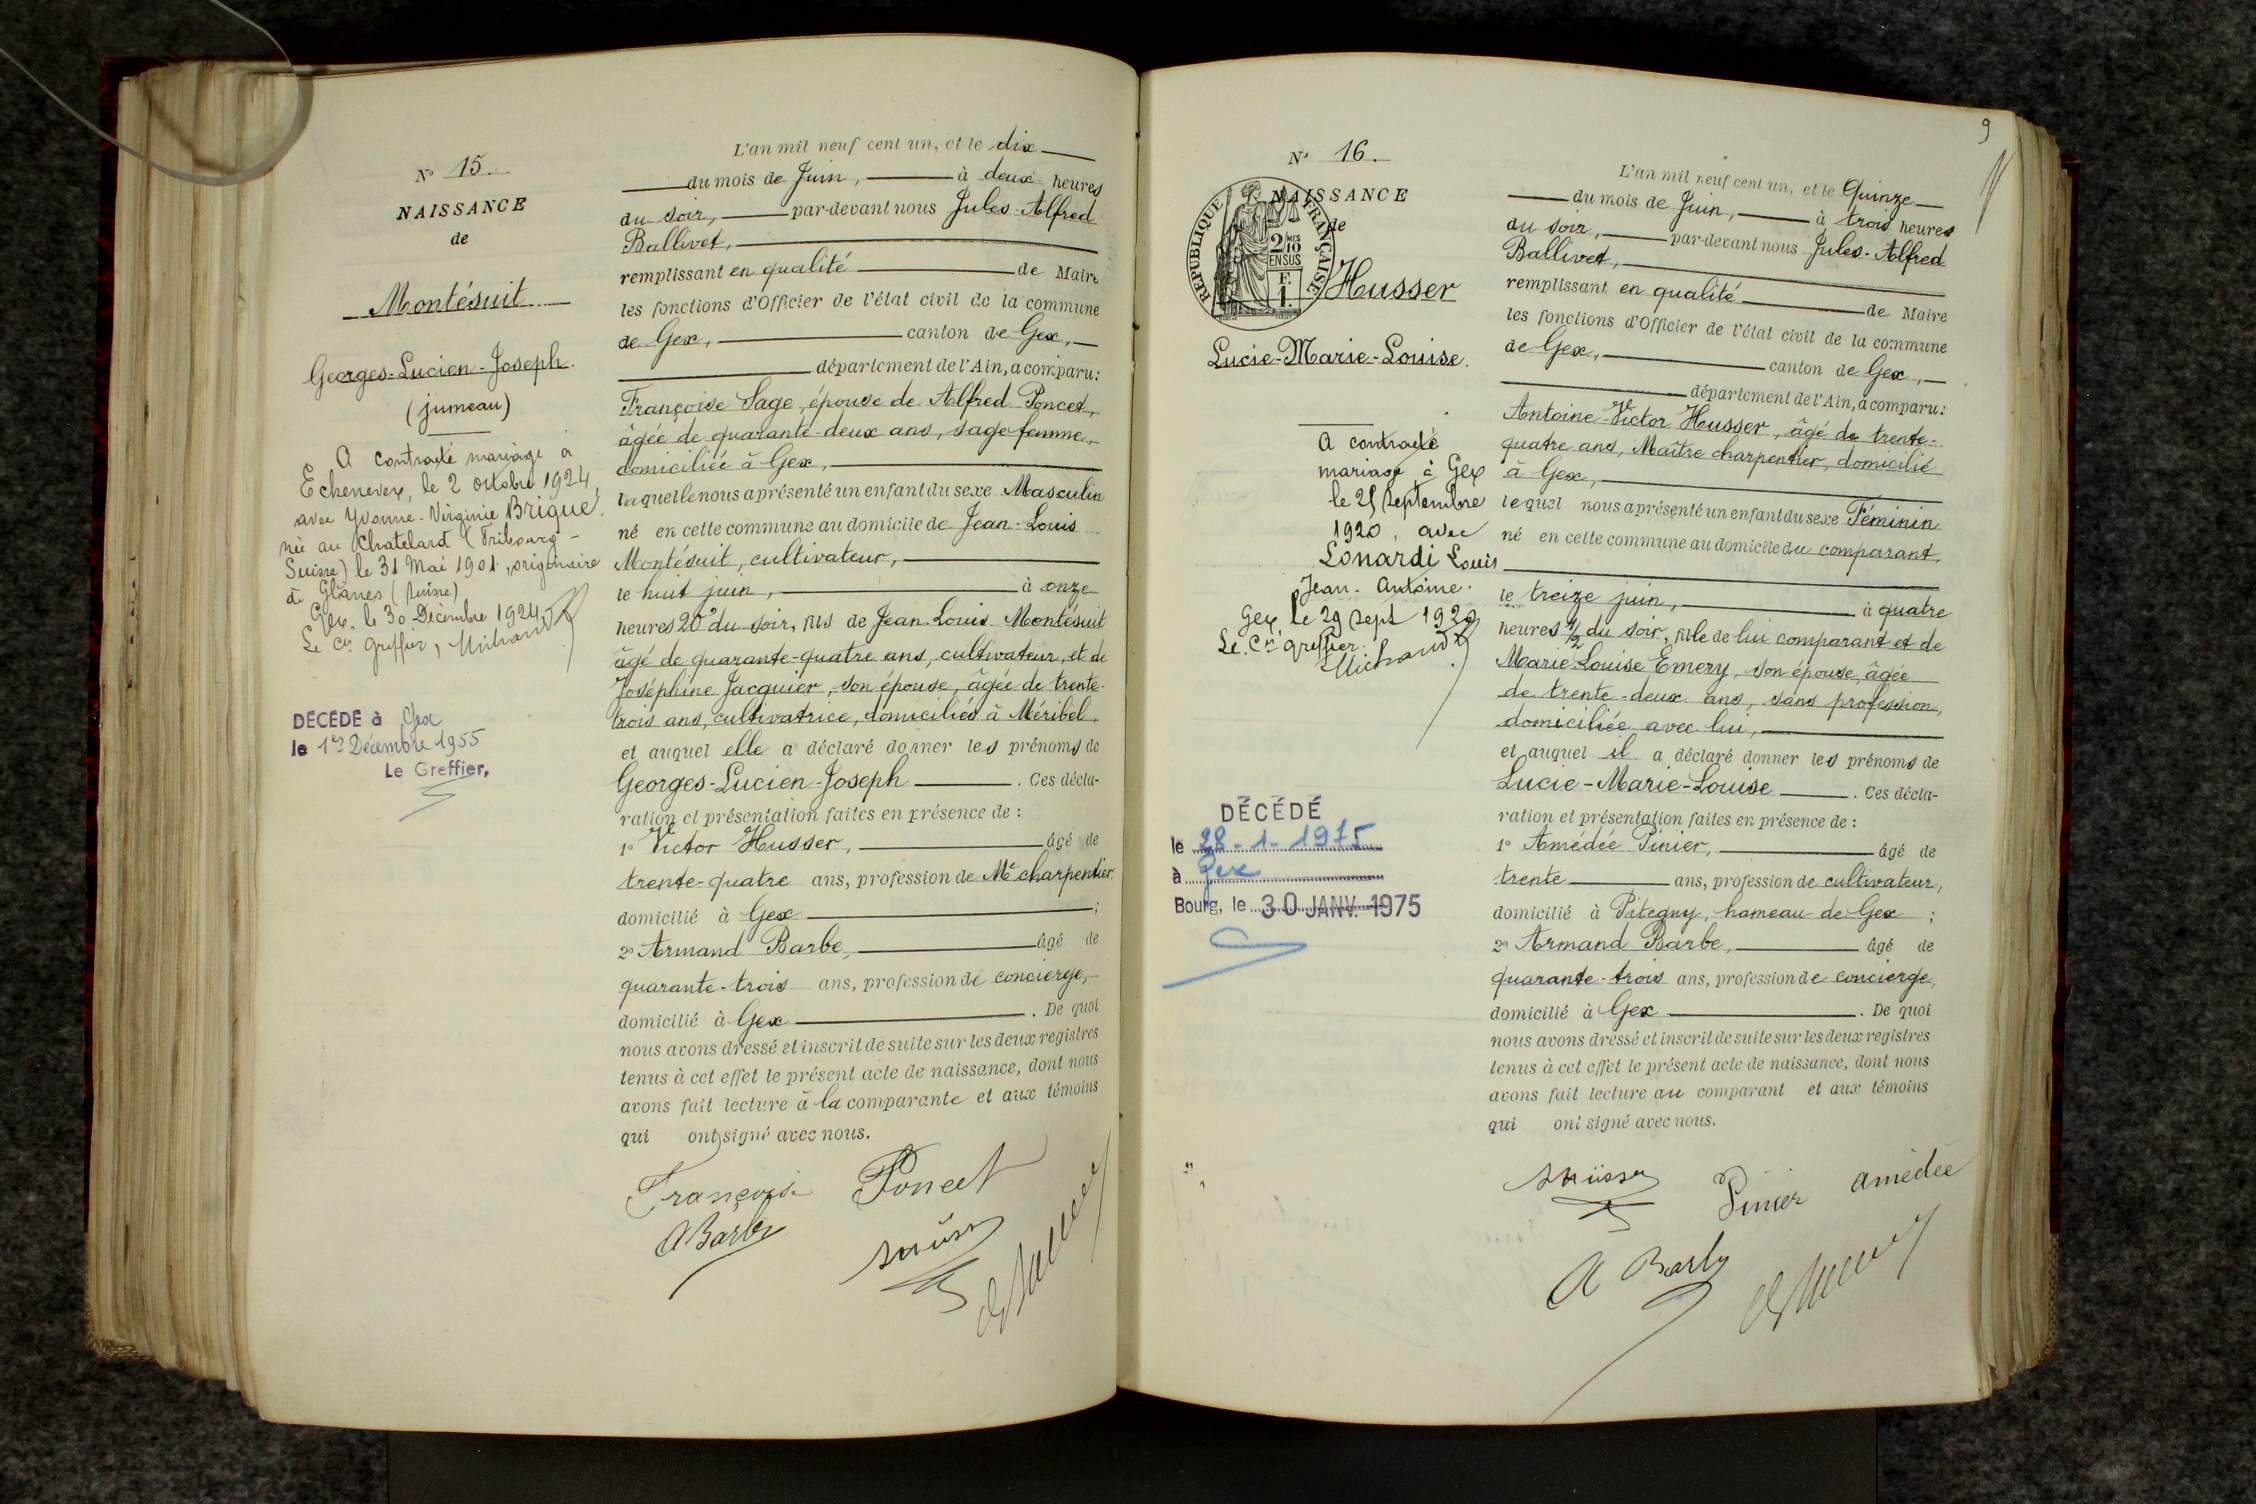 N° 15.
NAISSANCE
de
Montésuit
Georges-Lucien-Joseph.
(jumeau)
A contracté mariage à
Echenevex, le 2 octobre 1924,
avec Yvonne-Virginie Brigue,
née au Chatelard (Fribourg-
Suisse) le 31 Mai 1901, originaire
de Glânes (Suisse)
Gex, le 30 Décembre 1924
Le Cis Greffier, Michaud
DÉCÉDÉ à Gex
le 1er Décembre 1955
Le Greffier,
L'an mil neuf cent un, et le dix
du mois de Juin, à deux heures
du soir, par-devant nous Jules-Alfred
Ballivet,
remplissant en qualité de Maire
les fonctions d'Officier de l'état civil de la commune
de Gex, canton de Gex,
département de l'Ain, a comparu:
Françoise Sage, épouse de Alfred Poncet,
âgée de quarante-deux ans, sage femme,
domiciliée à Gex,
laquelle nous a présenté un enfant du sexe Masculin
né en cette commune au domicile de Jean-Louis
Montésuit, cultivateur,
le huit juin, à onze
heures 20 du soir, fils de Jean-Louis Montésuit
âgé de quarante-quatre ans, cultivateur, et de
Joséphine Jacquier, son épouse, âgée de trente-
trois ans, cultivatrice, domiciliés à Méribel.
et auquel elle a déclaré donner les prénoms de
Georges-Lucien-Joseph . Ces décla-
ration et présentation faites en présence de :
1° Victor Husser, âgé de
trente-quatre ans, profession de Me charpentier
domicilié à Gex ;
2° Armand Barbe, âgé de
quarante-trois ans, profession de concierge,
domicilié à Gex . De quoi
nous avons dressé et inscrit de suite sur les deux registres
tenus à cet effet le présent acte de naissance, dont nous
avons fait lecture à la comparante et aux témoins
qui ont signé avec nous.
Françoise Poncet
A Barbe
9
N° 16.
NAISSANCE
de
RÉPUBLIQUE FRANÇAISE
2 MES
10
EN SUS
F.
1.
Husser
Lucie-Marie-Louise.
A contracté
mariage à Gex
le 25 Septembre
1920, avec
Lonardi Louis
Jean-Antoine.
Gex, le 29 Sept 1920
Le Cis Greffier.
Michaud
DÉCÉDÉ
le 28-1-1975
à Gex
Bourg, le 30 JANV. 1975
L'an mil neuf cent un, et le Quinze
du mois de Juin, à trois heures
du soir, par-devant nous Jules-Alfred
Ballivet,
remplissant en qualité de Maire
les fonctions d'Officier de l'état civil de la commune
de Gex, canton de Gex,
département de l'Ain, a comparu:
Antoine-Victor Husser, âgé de trente-
quatre ans, Maître charpentier, domicilié
à Gex,
lequel nous a présenté un enfant du sexe Féminin
né en cette commune au domicile du comparant,
le treize juin, à quatre
heures 1/2 du soir, fille de lui comparant et de
Marie-Louise Emery, son épouse, âgée
de trente-deux ans, sans profession,
domiciliée avec lui,
et auquel il a déclaré donner les prénoms de
Lucie-Marie-Louise . Ces décla-
ration et présentation faites en présence de :
1° Amédée Pinier, âgé de
trente ans, profession de cultivateur,
domicilié à Pitegny, hameau de Gex ;
2° Armand Barbe, âgé de
quarante-trois ans, profession de concierge,
domicilié à Gex . De quoi
nous avons dressé et inscrit de suite sur les deux registres
tenus à cet effet le présent acte de naissance, dont nous
avons fait lecture au comparant et aux témoins
qui ont signé avec nous.
Pinier amédée
A Barbe